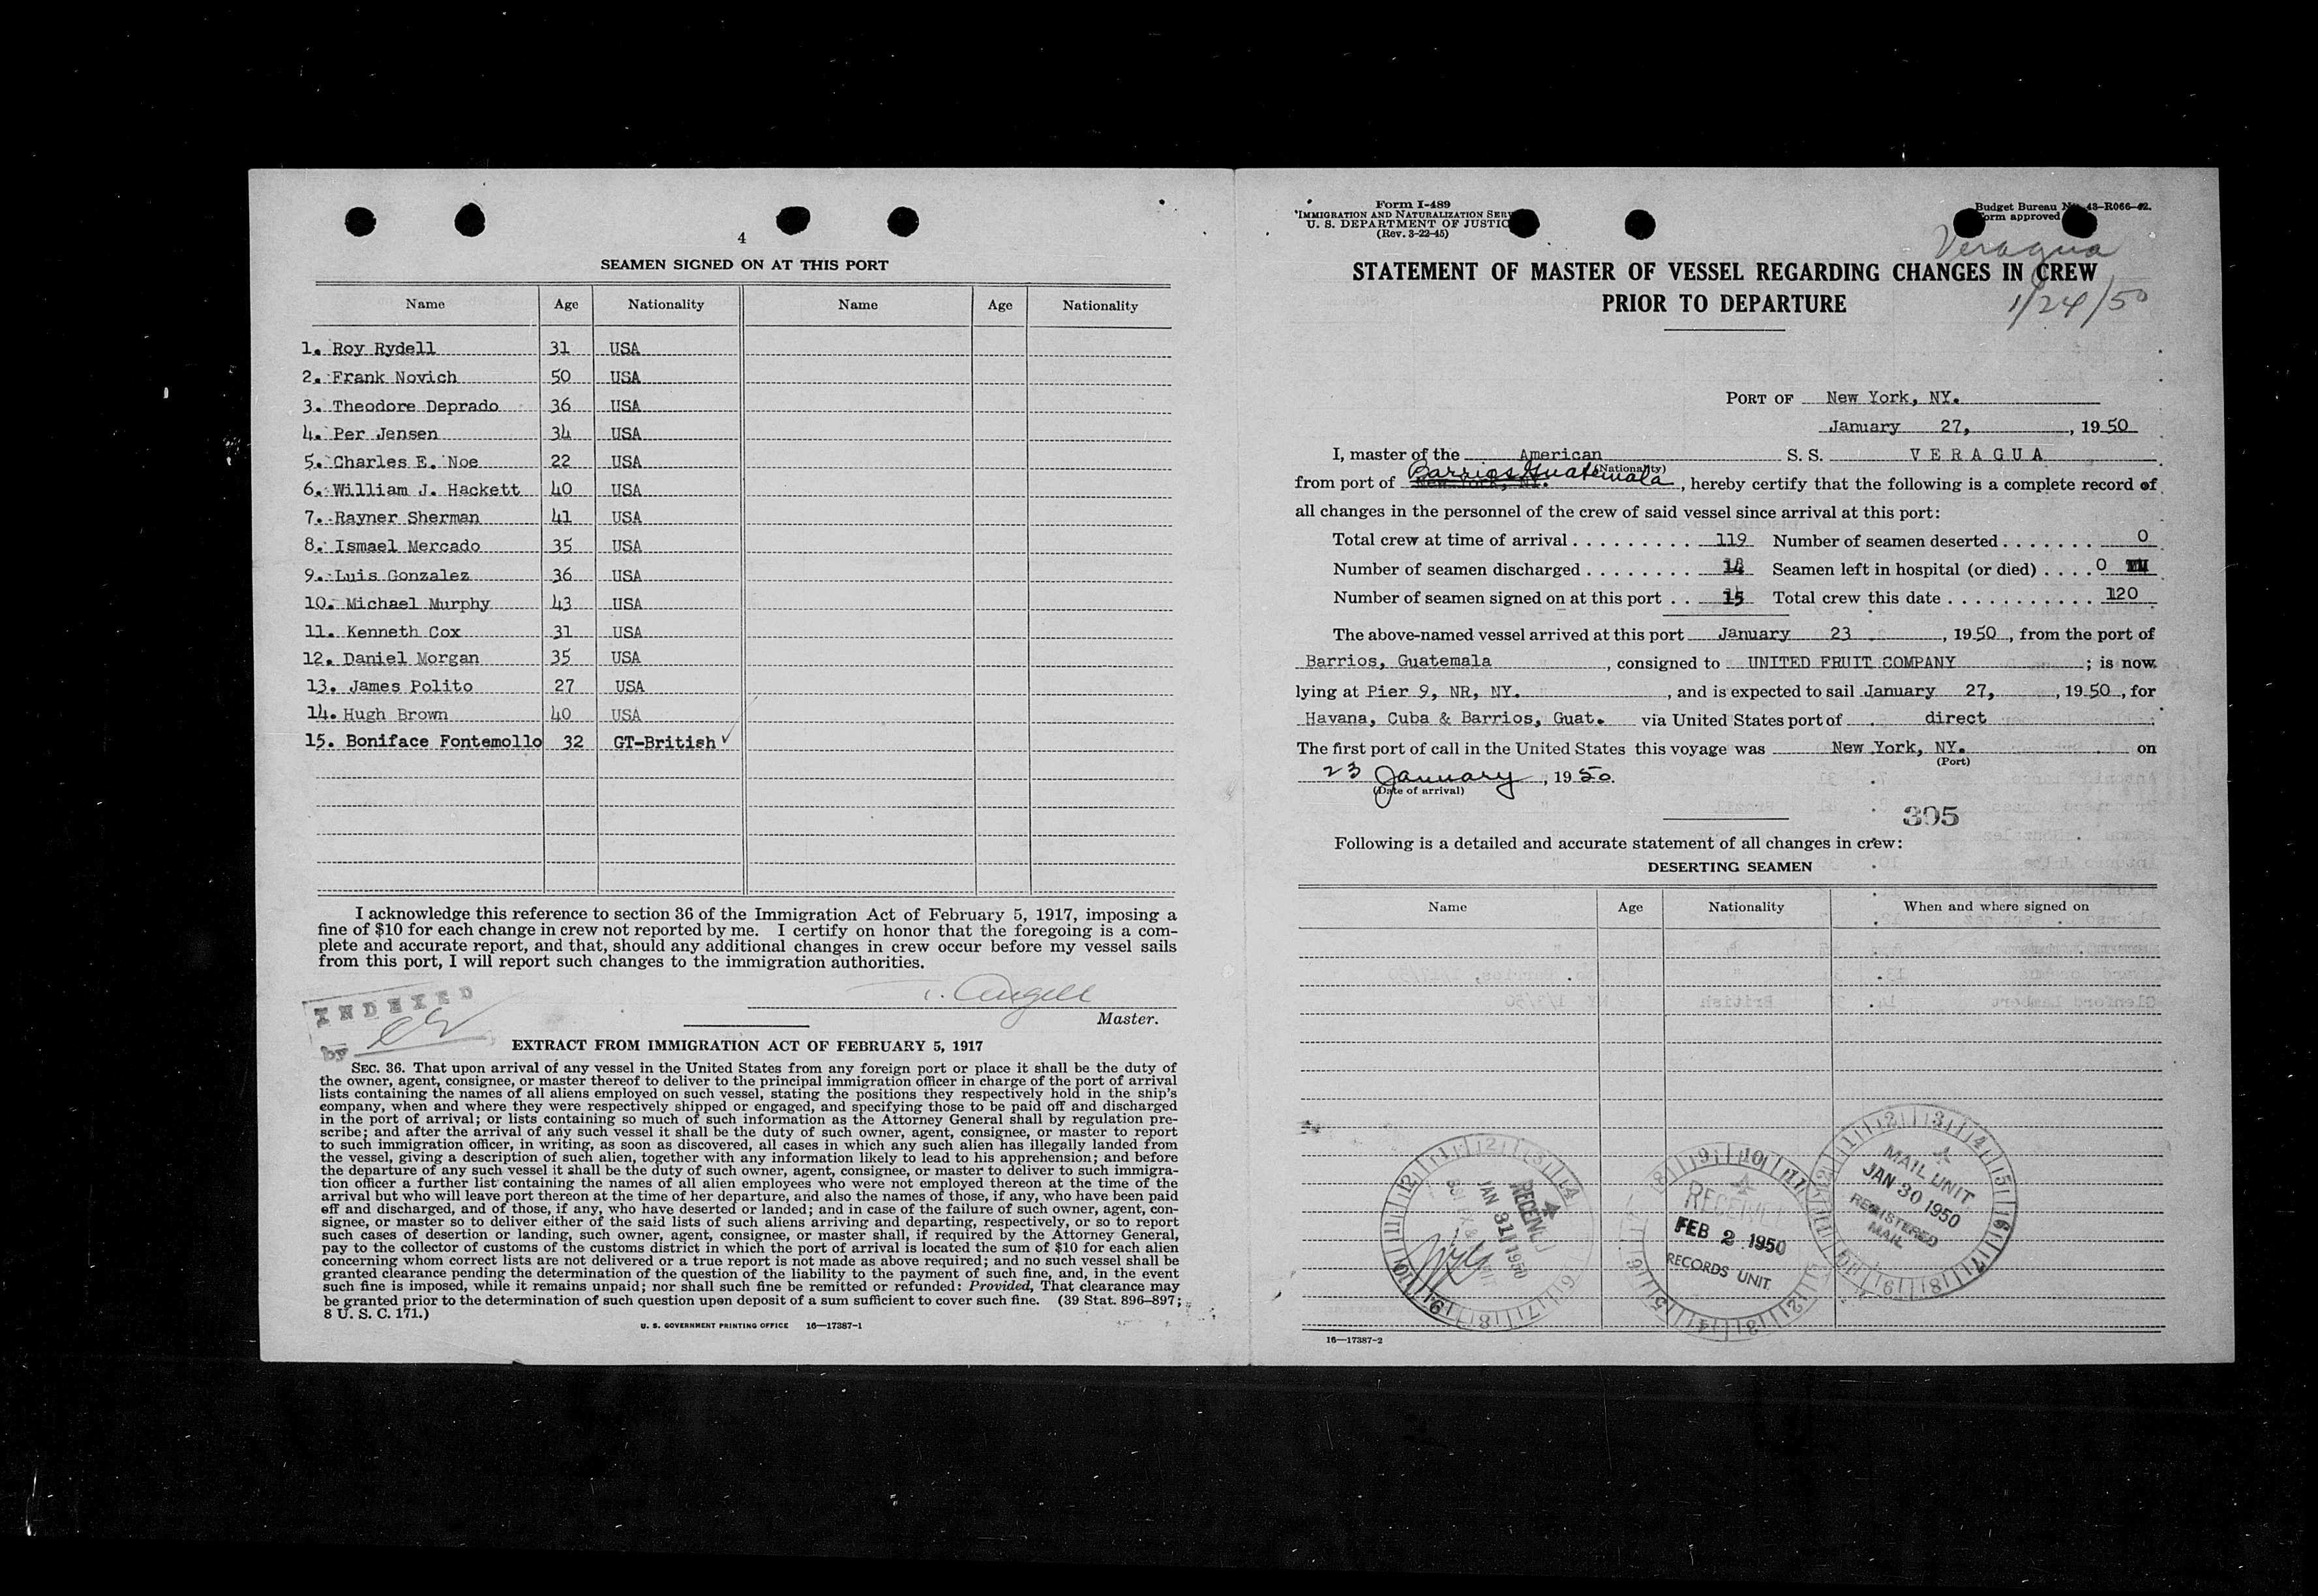 4
SEAMEN SIGNED ON AT THIS PORT
Name Age Nationality Name Age Nationality
1. Roy Rydell 31 USA
2. Frank Novich 50 USA
3. Theodore Deprado 36 USA
4. Per Jensen 34 USA
5. Charles E. Noe 22 USA
6. William J. Hackett 40 USA
7. Rayner Sherman 41 USA
8. Ismael Mercado 35 USA
9. Luis Gonzalez 36 USA
10. Michael Murphy 43 USA
11. Kenneth Cox 31 USA
12. Daniel Morgan 35 USA
13. James Polito 27 USA
14. Hugh Brown 40 USA
15. Boniface Fontemollo 32 GT-British ✓
I acknowledge this reference to section 36 of the Immigration Act of February 5, 1917, imposing a
fine of $10 for each change in crew not reported by me. I certify on honor that the foregoing is a com-
plete and accurate report, and that, should any additional changes in crew occur before my vessel sails
from this port, I will report such changes to the immigration authorities.
Angell
Master.
INDEXED
by
EXTRACT FROM IMMIGRATION ACT OF FEBRUARY 5, 1917
SEC. 36. That upon arrival of any vessel in the United States from any foreign port or place it shall be the duty of
the owner, agent, consignee, or master thereof to deliver to the principal immigration officer in charge of the port of arrival
lists containing the names of all aliens employed on such vessel, stating the positions they respectively hold in the ship's
company, when and where they were respectively shipped or engaged, and specifying those to be paid off and discharged
in the port of arrival; or lists containing so much of such information as the Attorney General shall by regulation pre-
scribe; and after the arrival of any such vessel it shall be the duty of such owner, agent, consignee, or master to report
to such immigration officer, in writing, as soon as discovered, all cases in which any such alien has illegally landed from
the vessel, giving a description of such alien, together with any information likely to lead to his apprehension; and before
the departure of any such vessel it shall be the duty of such owner, agent, consignee, or master to deliver to such immigra-
tion officer a further list containing the names of all alien employees who were not employed thereon at the time of the
arrival but who will leave port thereon at the time of her departure, and also the names of those, if any, who have been paid
off and discharged, and of those, if any, who have deserted or landed; and in case of the failure of such owner, agent, con-
signee, or master so to deliver either of the said lists of such aliens arriving and departing, respectively, or so to report
such cases of desertion or landing, such owner, agent, consignee, or master shall, if required by the Attorney General,
pay to the collector of customs of the customs district in which the port of arrival is located the sum of $10 for each alien
concerning whom correct lists are not delivered or a true report is not made as above required; and no such vessel shall be
granted clearance pending the determination of the question of the liability to the payment of such fine, and, in the event
such fine is imposed, while it remains unpaid; nor shall such fine be remitted or refunded: Provided, That clearance may
be granted prior to the determination of such question upon deposit of a sum sufficient to cover such fine. (39 Stat. 896-897;
8 U. S. C. 171.)
U. S. GOVERNMENT PRINTING OFFICE 16—17387-1
Form I-489
IMMIGRATION AND NATURALIZATION SERV
U. S. DEPARTMENT OF JUSTIC
(Rev. 3-22-45)
Budget Bureau No. 43-R066-42.
orm approved
Veragua
STATEMENT OF MASTER OF VESSEL REGARDING CHANGES IN CREW
PRIOR TO DEPARTURE
1/24/50
PORT OF New York, NY.
January 27, , 19 50
I, master of the American S. S. VERAGUA
(Nationality)
from port of Barrios Guatemala , hereby certify that the following is a complete record of
all changes in the personnel of the crew of said vessel since arrival at this port:
Total crew at time of arrival . . . . . . . . . . 119 Number of seamen deserted . . . . . . . 0
Number of seamen discharged . . . . . . . . 14 Seamen left in hospital (or died) . . . . 0
Number of seamen signed on at this port . . 15 Total crew this date . . . . . . . . . . . . 120
The above-named vessel arrived at this port January 23 , 19 50 , from the port of
Barrios, Guatemala , consigned to UNITED FRUIT COMPANY ; is now
lying at Pier 9, NR, NY. , and is expected to sail January 27, , 19 50 , for
Havana, Cuba & Barrios, Guat. via United States port of direct
The first port of call in the United States this voyage was New York, NY. on
(Port)
23 January , 19 50.
(Date of arrival)
395
Following is a detailed and accurate statement of all changes in crew:
DESERTING SEAMEN
Name Age Nationality When and where signed on
RECEIVED
JAN 31 1950
RECEIVED
FEB 2 1950
RECORDS UNIT
MAIL UNIT
JAN 30 1950
REGISTERED
MAIL
16—17387-2